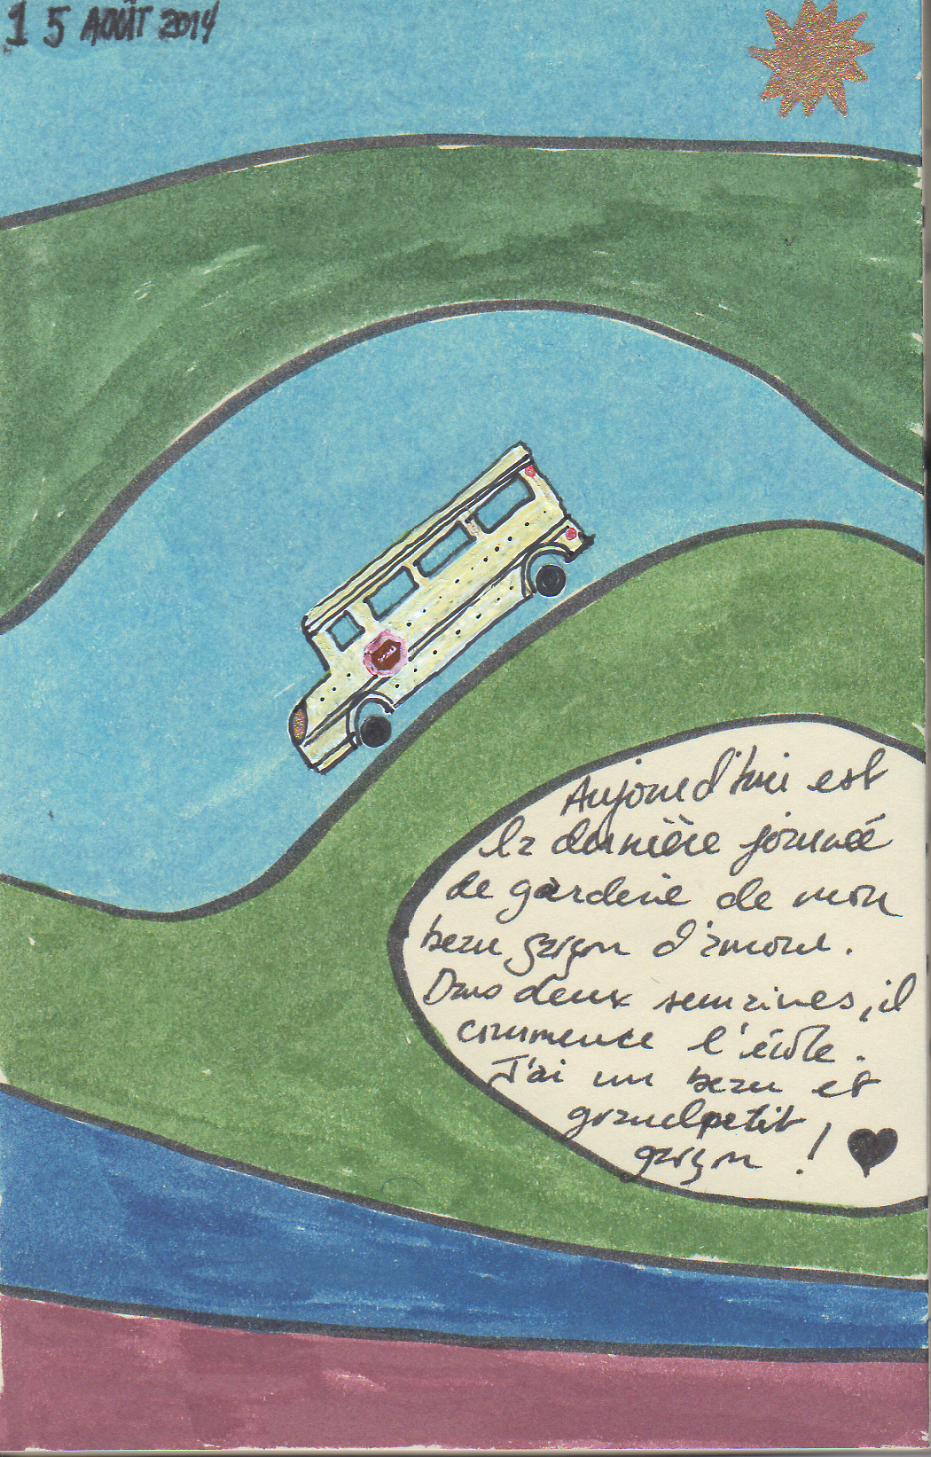 15 AOÛT 2014
Aujourd'hui est
la dernière journée
de garderie de mon
beau garçon d'amour.
Dans deux semaines, il
commence l'école.
J'ai un beau et
grand petit
garçon ! ♥